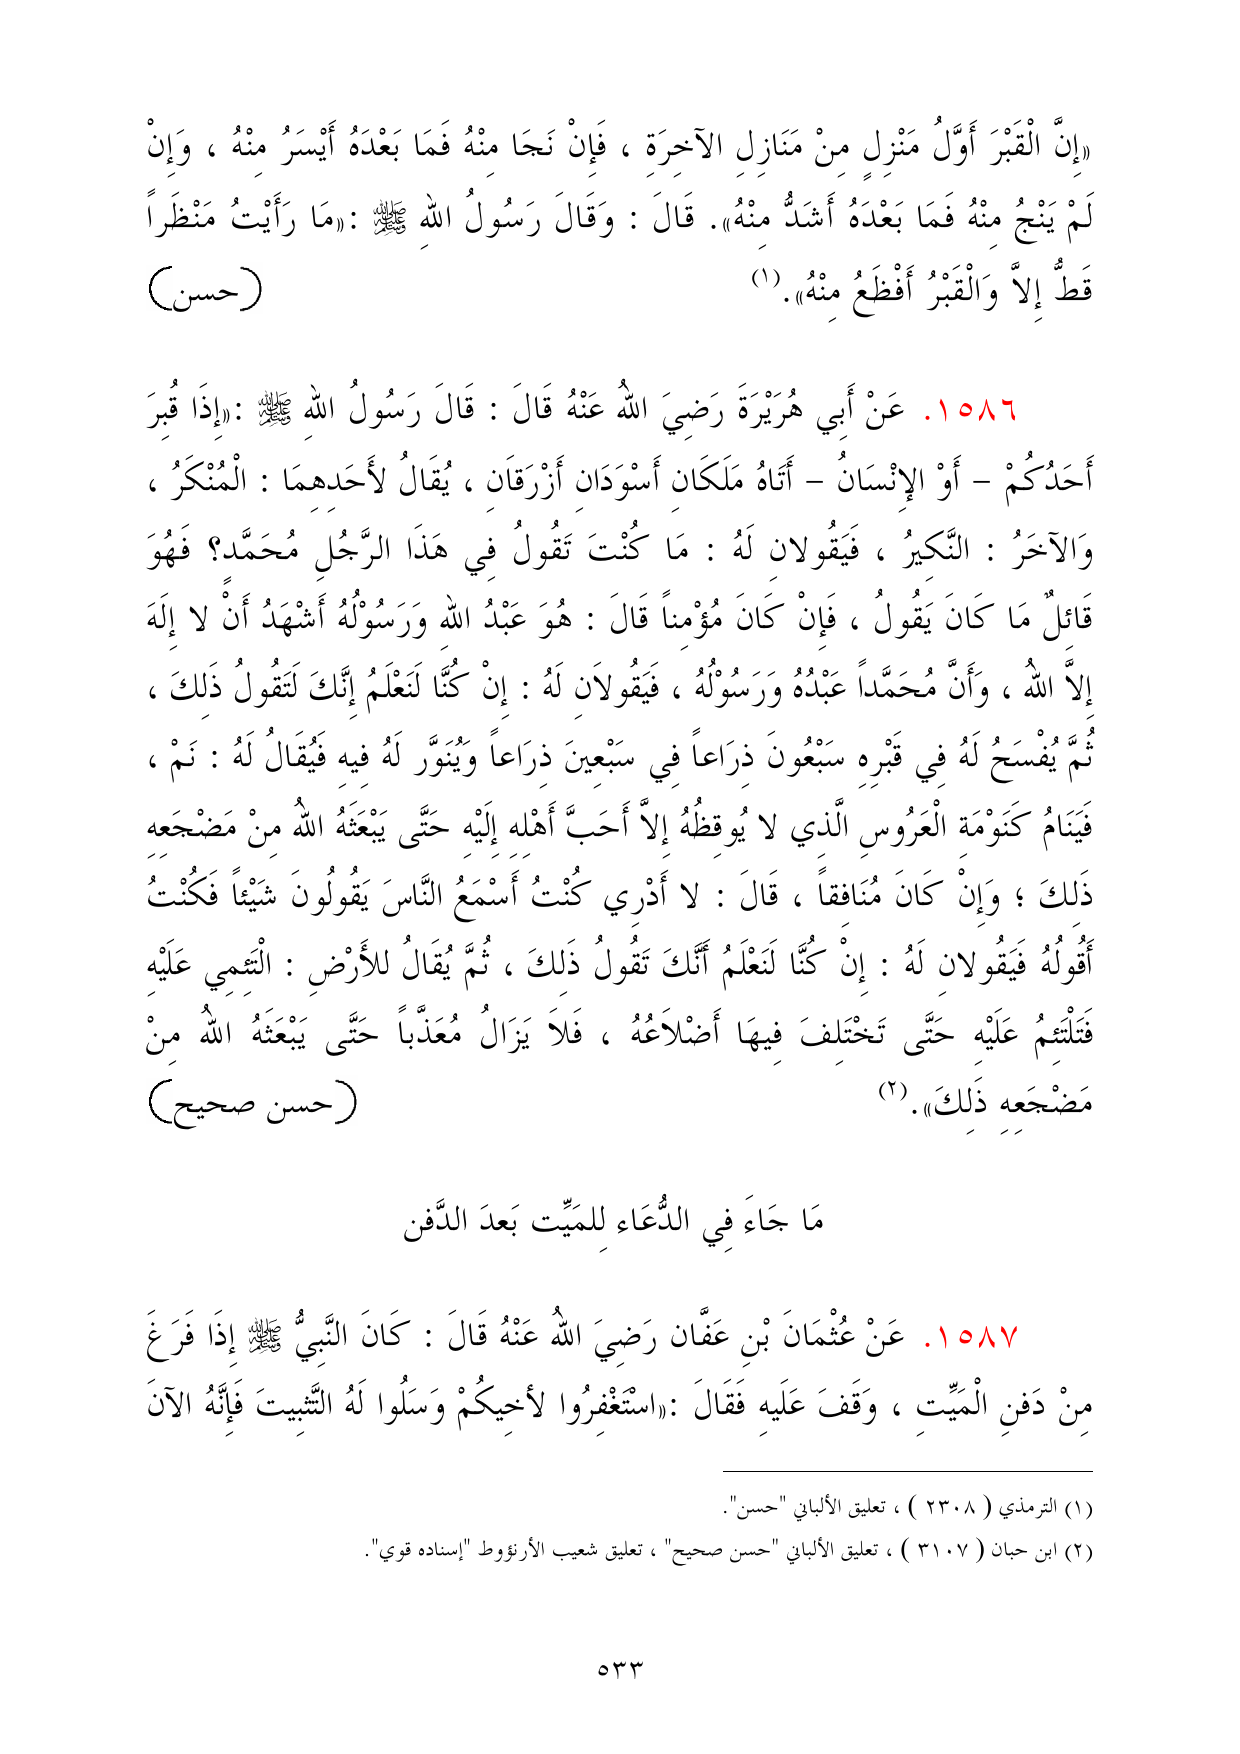 «إِنَّ الْقَبْرَ أَوَّلُ مَنْزِلٍ مِنْ مَنَازِلِ الآخِرَةِ ، فَإِنْ نَجَا مِنْهُ فَمَا بَعْدَهُ أَيْسَرُ مِنْهُ ، وَإِنْ
لَمْ يَنْجُ مِنْهُ فَمَا بَعْدَهُ أَشَدُّ مِنْهُ». قَالَ : وَقَالَ رَسُولُ اللهِ ﷺ :«مَا رَأَيْتُ مَنْظَراً
قَطُّ إِلاَّ وَالْقَبْرُ أَفْظَعُ مِنْهُ».(١) (حسن)
١٥٨٦. عَنْ أَبِي هُرَيْرَةَ رَضِيَ اللهُ عَنْهُ قَالَ : قَالَ رَسُولُ اللهِ ﷺ :«إِذَا قُبِرَ
أَحَدُكُمْ – أَوْ الإِنْسَانُ – أَتَاهُ مَلَكَانِ أَسْوَدَانِ أَزْرَقَانِ ، يُقَالُ لأَحَدِهِمَا : الْمُنْكَرُ ،
وَالآخَرُ : النَّكِيرُ ، فَيَقُولانِ لَهُ : مَا كُنْتَ تَقُولُ فِي هَذَا الرَّجُلِ مُحَمَّدٍ؟ فَهُوَ
قَائِلٌ مَا كَانَ يَقُولُ ، فَإِنْ كَانَ مُؤْمِناً قَالَ : هُوَ عَبْدُ اللهِ وَرَسُوْلُهُ أَشْهَدُ أَنْ لا إِلَهَ
إِلاَّ اللهُ ، وَأَنَّ مُحَمَّداً عَبْدُهُ وَرَسُوْلُهُ ، فَيَقُولاَنِ لَهُ : إِنْ كُنَّا لَنَعْلَمُ إِنَّكَ لَتَقُولُ ذَلِكَ ،
ثُمَّ يُفْسَحُ لَهُ فِي قَبْرِهِ سَبْعُونَ ذِرَاعاً فِي سَبْعِينَ ذِرَاعاً وَيُنَوَّر لَهُ فِيهِ فَيُقَالُ لَهُ : نَمْ ،
فَيَنَامُ كَنَوْمَةِ الْعَرُوسِ الَّذِي لا يُوقِظُهُ إِلاَّ أَحَبَّ أَهْلِهِ إِلَيْهِ حَتَّى يَبْعَثَهُ اللهُ مِنْ مَضْجَعِهِ
ذَلِكَ ؛ وَإِنْ كَانَ مُنَافِقاً ، قَالَ : لا أَدْرِي كُنْتُ أَسْمَعُ النَّاسَ يَقُولُونَ شَيْئاً فَكُنْتُ
أَقُولُهُ فَيَقُولانِ لَهُ : إِنْ كُنَّا لَنَعْلَمُ أَنَّكَ تَقُولُ ذَلِكَ ، ثُمَّ يُقَالُ للأَرْضِ : الْتَئِمِي عَلَيْهِ
فَتَلْتَئِمُ عَلَيْهِ حَتَّى تَخْتَلِفَ فِيهَا أَضْلاَعُهُ ، فَلاَ يَزَالُ مُعَذَّباً حَتَّى يَبْعَثَهُ اللهُ مِنْ
مَضْجَعِهِ ذَلِكَ».(٢) (حسن صحيح)
مَا جَاءَ فِي الدُّعَاءِ لِلمَيِّتِ بَعدَ الدَّفنِ
١٥٨٧. عَنْ عُثْمَانَ بْنِ عَفَّان رَضِيَ اللهُ عَنْهُ قَالَ : كَانَ النَّبِيُّ ﷺ إِذَا فَرَغَ
مِنْ دَفنِ الْمَيِّتِ ، وَقَفَ عَلَيهِ فَقَالَ :«اسْتَغْفِرُوا لأخِيكُمْ وَسَلُوا لَهُ التَّثبِيتَ فَإِنَّهُ الآنَ
(١) الترمذي ( ٢٣٠٨ ) ، تعليق الألباني "حسن".
(٢) ابن حبان ( ٣١٠٧ ) ، تعليق الألباني "حسن صحيح" ، تعليق شعيب الأرنؤوط "إسناده قوي".
٥٣٣